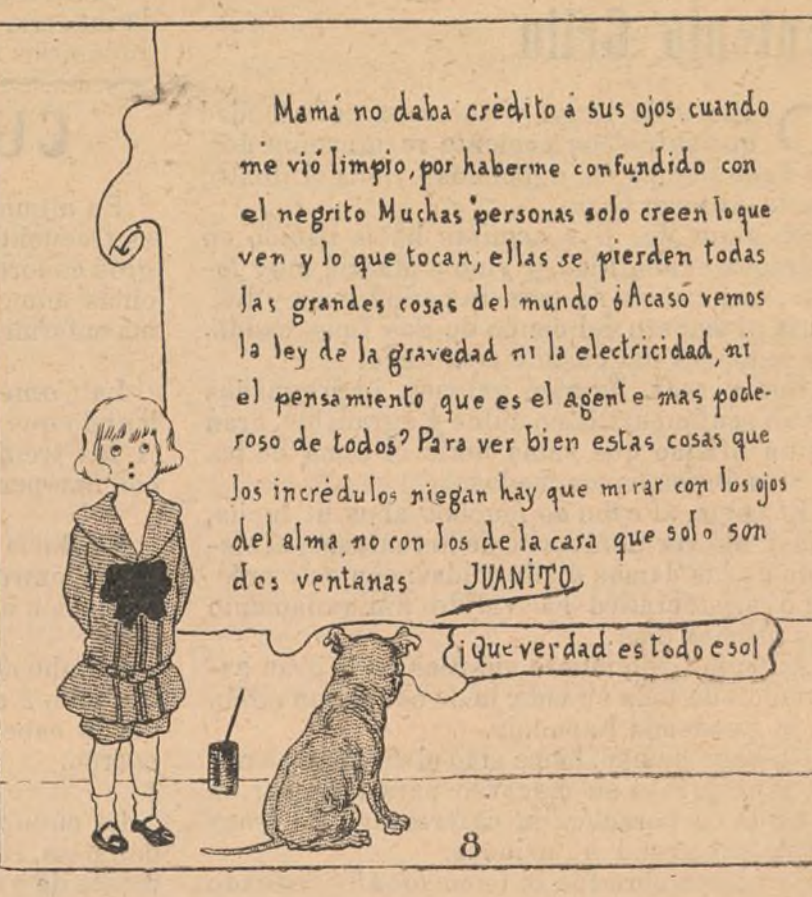 Mamá no daba crédito á sus ojos cuando
me vió limpio, por haberme confundido con
el negrito Muchas personas solo creen lo que
ven y lo que tocan, ellas se pierden todas
las grandes cosas del mundo ¿Acaso vemos
la ley de la gravedad ni la electricidad, ni
el pensamiento que es el agente mas pode-
roso de todos? Para ver bien estas cosas que
los incrédulos niegan hay que mirar con los ojos
del alma, no con los de la cara que solo son
dos ventanas JUANITO
¡Que verdad es todo eso!
8